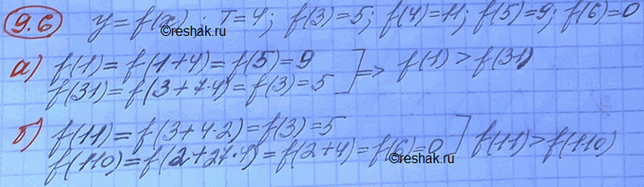 9.6 y=f(x); T=4; f(3)=5; f(4)=11; f(5)=9; f(6)=0
а) f(1)=f(1+4)=f(5)=9
f(31)=f(3+7·4)=f(3)=5 ] => f(1)>f(31)
©reshak.ru
б) f(11)=f(3+4·2)=f(3)=5
f(110)=f(2+27·4)=f(2+4)=f(6)=0 ] f(11)>f(110)
©reshak.ru